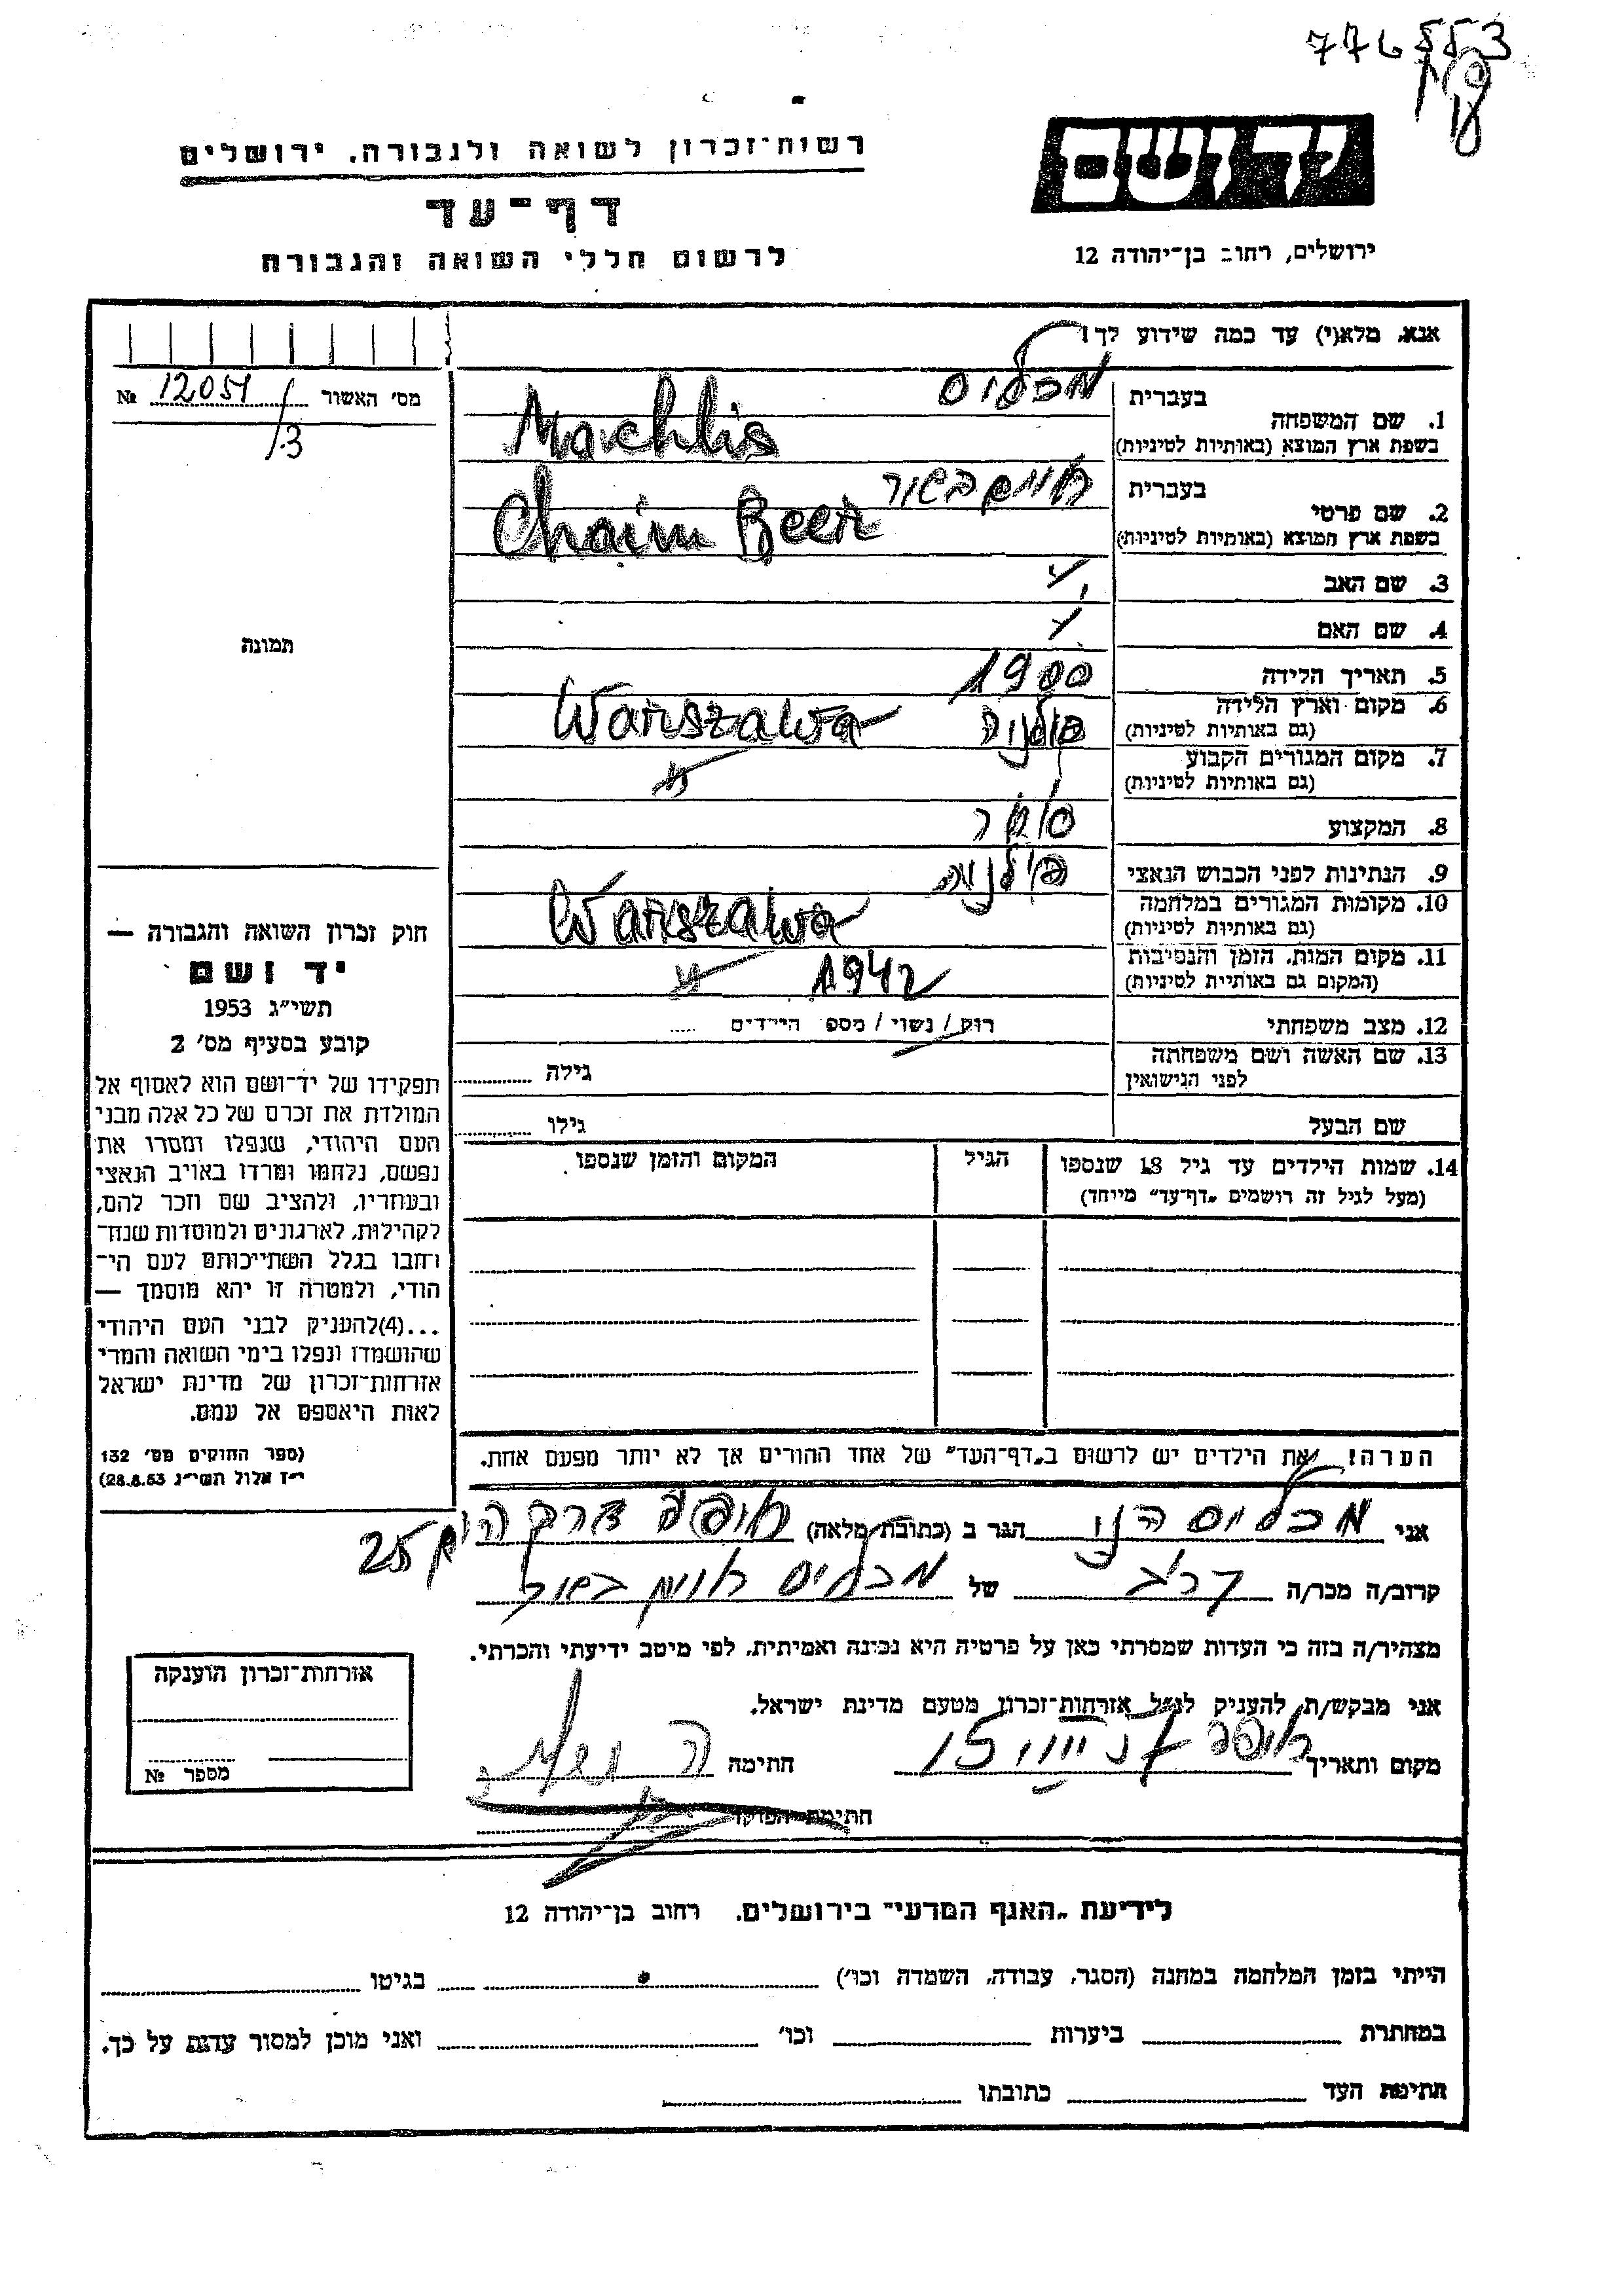 776553
יד ושם
ירושלים, רחוב בן־יהודה 12
רשות־זכרון לשואה ולגבורה, ירושלים
דף־עד
לרשום חללי השואה והגבורה
אנא, מלא(י) עד כמה שידוע לך!
מס' האשור № 12051
/3
תמונה
1. שם המשפחה בעברית מכליס
בשפת ארץ המוצא (באותיות לטיניות) Machlis
2. שם פרטי בעברית חיים
בשפת ארץ המוצא (באותיות לטיניות) Chaim Beer
3. שם האב
4. שם האם
5. תאריך הלידה 1900
6. מקום וארץ הלידה (גם באותיות לטיניות) פולניה Warszawa
7. מקום המגורים הקבוע (גם באותיות לטיניות) "
8. המקצוע סוחר
9. הנתינות לפני הכבוש הנאצי פולניה
10. מקומות המגורים במלחמה (גם באותיות לטיניות) Warszawa
11. מקום המות, הזמן והנסיבות (המקום גם באותיות לטיניות) 1942 "
12. מצב משפחתי רוק / נשוי / מספ הילדים
13. שם האשה ושם משפחתה לפני הנישואין גילה
שם הבעל גילו
14. שמות הילדים עד גיל 18 שנספו הגיל המקום והזמן שנספו
(מעל לגיל זה רושמים „דף־עד" מייחד)
הערה! את הילדים יש לרשום ב„דף־העד" של אחד ההורים אך לא יותר מפעם אחת.
חוק זכרון השואה והגבורה —
יד ושם
תשי"ג 1953
קובע בסעיף מס' 2
תפקידו של יד־ושם הוא לאסוף אל
המולדת את זכרם של כל אלה מבני
העם היהודי, שנפלו ומסרו את
נפשם, נלחמו ומרדו באויב הנאצי
ובעוזריו, ולהציב שם וזכר להם,
לקהילות, לארגונים ולמוסדות שנח־
רחבו בגלל השתייכותם לעם הי־
הודי, ולמטרה זו יהא מוסמך —
...(4)להעניק לבני העם היהודי
שהושמדו ונפלו בימי השואה והמרי
אזרחות־זכרון של מדינת ישראל
לאות היאספם אל עמם.
(ספר החוקים מס' 132
י"ז אלול תשי"ג 28.8.53)
אני מכליס הגר ב (כתובת מלאה) חיפה דרך הים 25
קרוב/ה מכר/ה קרוב של מכליס חיים
מצהיר/ה בזה כי העדות שמסרתי כאן על פרטיה היא נכונה ואמיתית, לפי מיטב ידיעתי והכרתי.
אני מבקש/ת להעניק לנ"ל אזרחות־זכרון מטעם מדינת ישראל.
מקום ותאריך חיפה חתימה
חתימת הפוקד
אזרחות־זכרון הוענקה
מספר №
לידיעת „האגף המדעי" בירושלים. רחוב בן־יהודה 12
הייתי בזמן המלחמה במחנה (הסגר, עבודה, השמדה וכו') בגיטו
במחתרת ביערות וכו' ואני מוכן למסור עדות על כך.
חתימת העד כתובתו